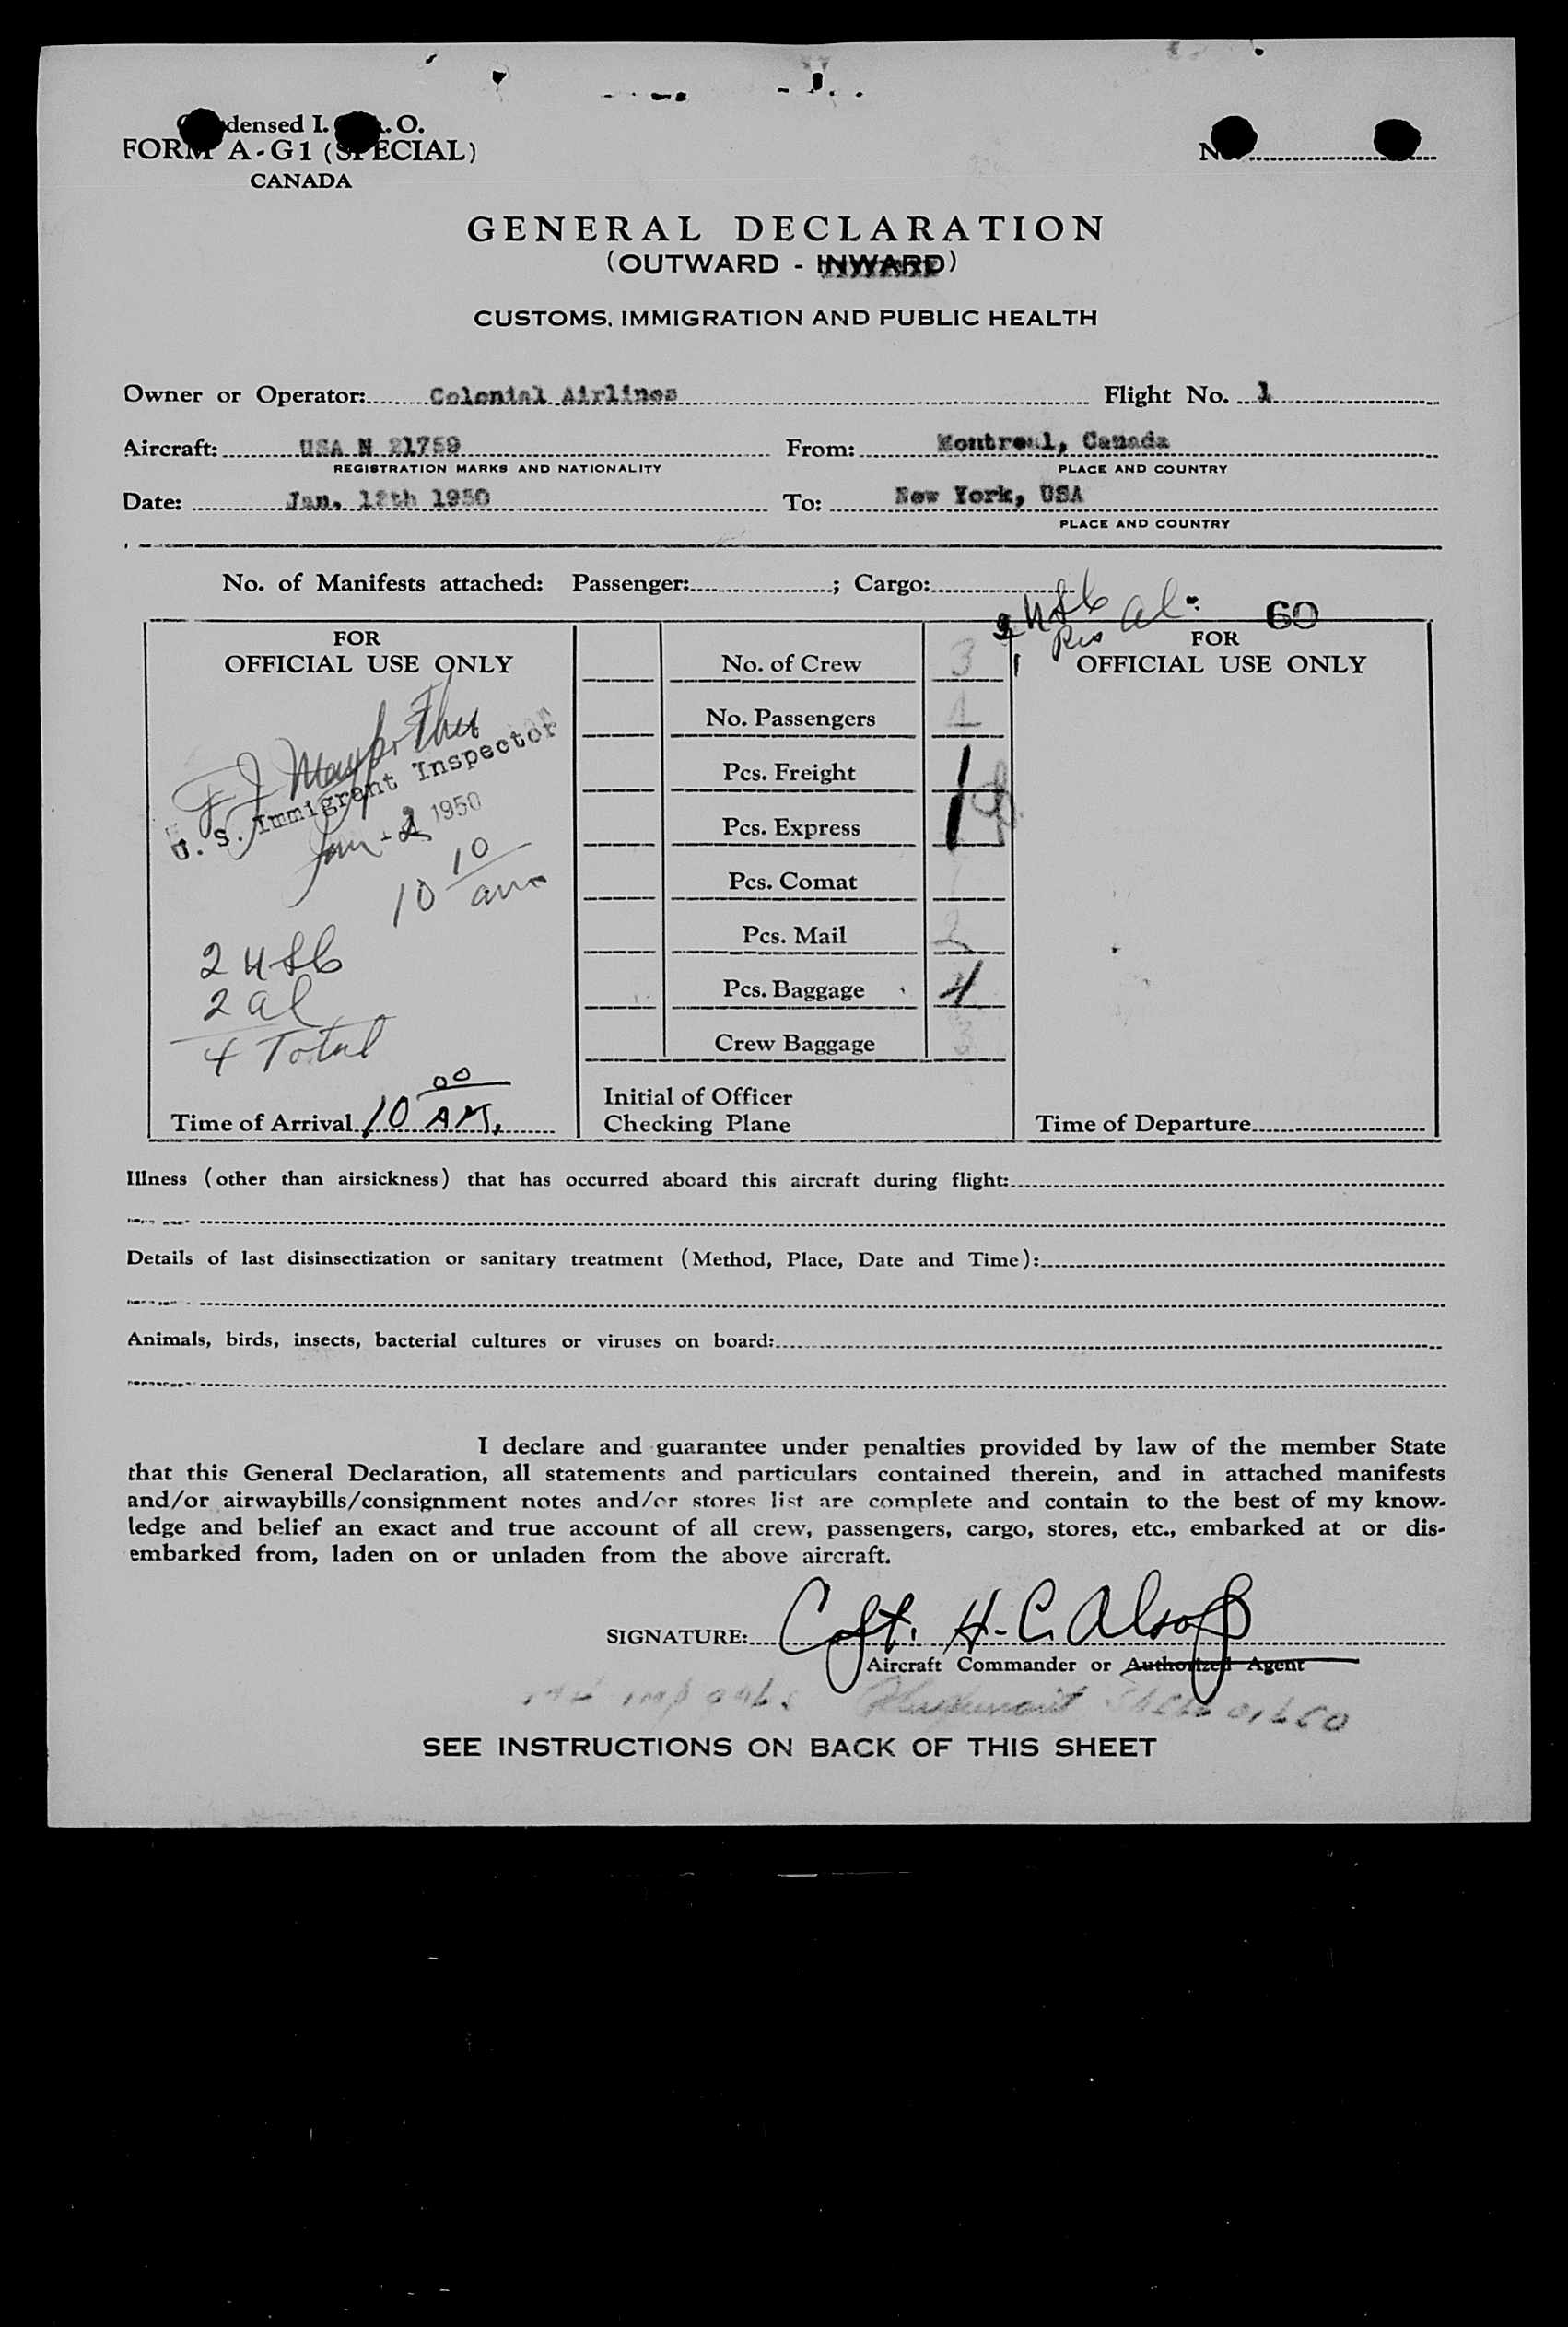 densed I. . O.
FORM A-G1 (SPECIAL)
CANADA
No.
GENERAL DECLARATION
(OUTWARD - INWARD)
CUSTOMS, IMMIGRATION AND PUBLIC HEALTH
Owner or Operator: Colonial Airlines Flight No. 1
Aircraft: USA N 21759 From: Montreal, Canada
REGISTRATION MARKS AND NATIONALITY PLACE AND COUNTRY
Date: Jan. 12th 1950 To: New York, USA
PLACE AND COUNTRY
No. of Manifests attached: Passenger: ; Cargo:
al 60
FOR
OFFICIAL USE ONLY
U. S. Immigrant Inspector
Jan 1950
10 10 am
2
2 al
4 Total
Time of Arrival 10 00 A.M.
No. of Crew 3
No. Passengers 1
Pcs. Freight 1
Pcs. Express 1
Pcs. Comat
Pcs. Mail 2
Pcs. Baggage 4
Crew Baggage 3
Initial of Officer
Checking Plane
FOR
OFFICIAL USE ONLY
Time of Departure
Illness (other than airsickness) that has occurred aboard this aircraft during flight:
Details of last disinsectization or sanitary treatment (Method, Place, Date and Time):
Animals, birds, insects, bacterial cultures or viruses on board:
I declare and guarantee under penalties provided by law of the member State
that this General Declaration, all statements and particulars contained therein, and in attached manifests
and/or airwaybills/consignment notes and/or stores list are complete and contain to the best of my know-
ledge and belief an exact and true account of all crew, passengers, cargo, stores, etc., embarked at or dis-
embarked from, laden on or unladen from the above aircraft.
SIGNATURE: Capt. H. C. Alsop
Aircraft Commander or Authorized Agent
SEE INSTRUCTIONS ON BACK OF THIS SHEET